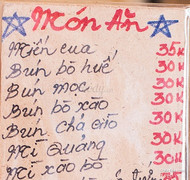 Món Ăn
Miến cua 35K
Bún bò huế 30K
Bún mọc 30K
Bún bò xào 30K
Bún chả giò 30K
Mì Quảng 30K
Mì xào bò 30K